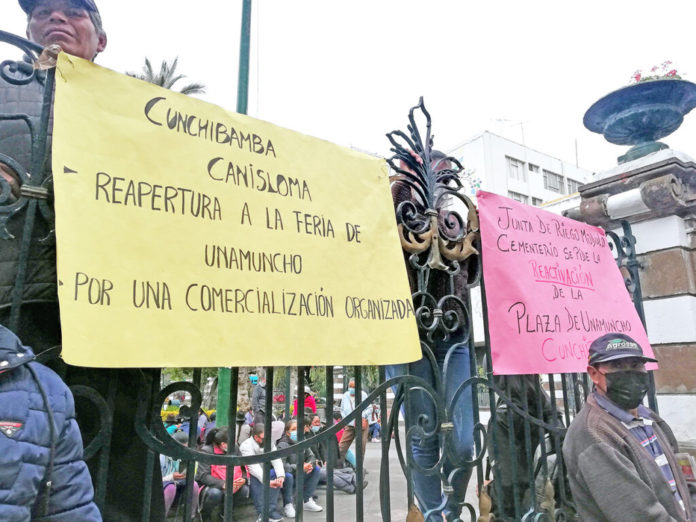 CUNCHIBAMBA
CANISLOMA
REAPERTURA A LA FERIA DE
UNAMUNCHO
POR UNA COMERCIALIZACIÓN ORGANIZADA
JUNTA DE RIEGO
CEMENTERIO SE PIDE LA
REACTIVACIÓN
DE LA
PLAZA DE UNAMUNCHO